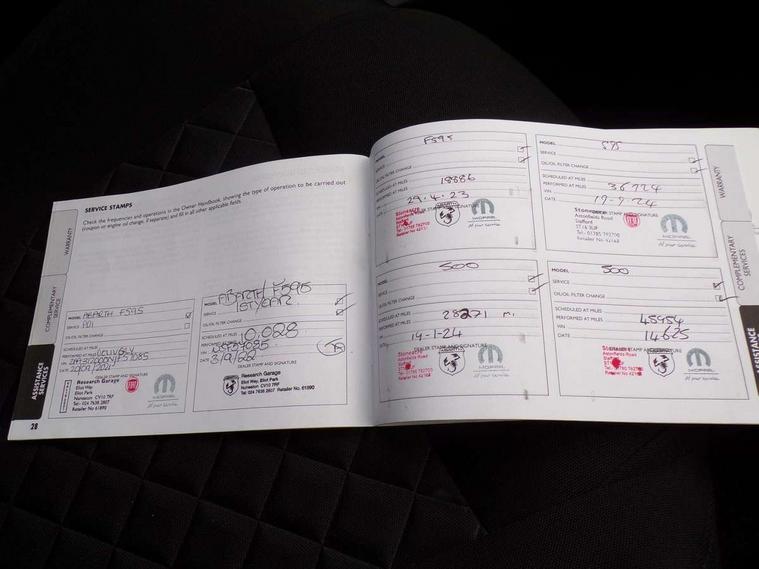 SERVICE STAMPS
Check the frequencies and operations in the Owner Handbook, showing the type of operation to be carried out
(coupon or engine oil change, if separate) and fill in all other applicable fields.
WARRANTY
COMPLEMENTARY SERVICE
ASSISTANCE SERVICES
28
MODEL ABARTH F595
SERVICE PDI
OIL/OIL FILTER CHANGE
SCHEDULED AT MILES
PERFORMED AT MILES DELIVERY
VIN
DATE
DEALER STAMP AND SIGNATURE
Research Garage
Eliot Way
Eliot Park
Nuneaton CV10 7RF
Tel: 024 7638 2807
Retailer No 61890
FIAT
MOPAR
MODEL ABARTH F595
SERVICE 1ST YEAR
OIL/OIL FILTER CHANGE
SCHEDULED AT MILES
PERFORMED AT MILES 10,028
VIN
DATE 3/9/22
DEALER STAMP AND SIGNATURE
Research Garage
Eliot Way, Eliot Park
Nuneaton CV10 7RF
Tel: 024 7638 2807 Retailer No: 61890
MODEL F595
SERVICE
OIL/OIL FILTER CHANGE
SCHEDULED AT MILES
PERFORMED AT MILES 18886
DATE 29.4.23
Stoneacre
MOPAR
MODEL 595
SERVICE
OIL/OIL FILTER CHANGE
SCHEDULED AT MILES
PERFORMED AT MILES 36724
VIN
DATE 19-9-24
DEALER STAMP AND SIGNATURE
Stoneacre
Astonfields Road
Stafford
ST16 3UF
Tel: 01785 782700
Retailer No: 42168
FIAT
MOPAR
MODEL 500
SERVICE
OIL/OIL FILTER CHANGE
SCHEDULED AT MILES
PERFORMED AT MILES 28271 m.
VIN
DATE 19-1-24
DEALER STAMP AND SIGNATURE
Stoneacre
Astonfields Road
MOPAR
MODEL 500
SERVICE
OIL/OIL FILTER CHANGE
SCHEDULED AT MILES
PERFORMED AT MILES 45954
VIN
DATE 14625
DEALER STAMP AND SIGNATURE
Stoneacre
Astonfields Road
MOPAR
WARRANTY
COMPLEMENTARY SERVICES
ASSISTANCE